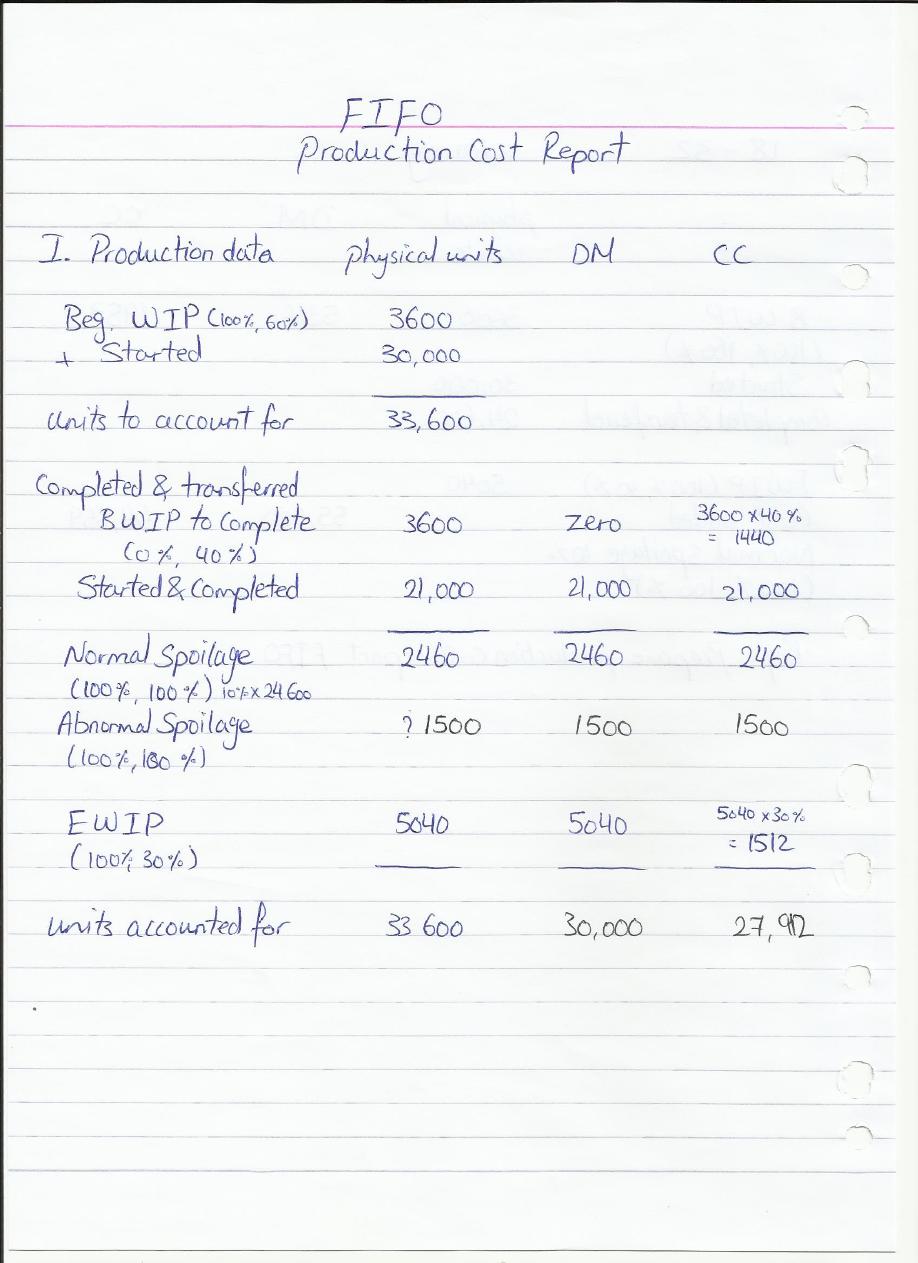 FIFO
Production Cost Report
I. Production data physical units DM CC
Beg. WIP (100%, 60%) 3600
+ Started 30,000
Units to account for 33,600
Completed & transferred
BWIP to Complete 3600 zero 3600 x 40%
(0%, 40%) = 1440
Started & Completed 21,000 21,000 21,000
Normal Spoilage 2460 2460 2460
(100%, 100%) 10% x 24600
Abnormal Spoilage ? 1500 1500 1500
(100%, 100%)
EWIP 5040 5040 5040 x 30%
(100%, 30%) = 1512
Units accounted for 33 600 30,000 27,912